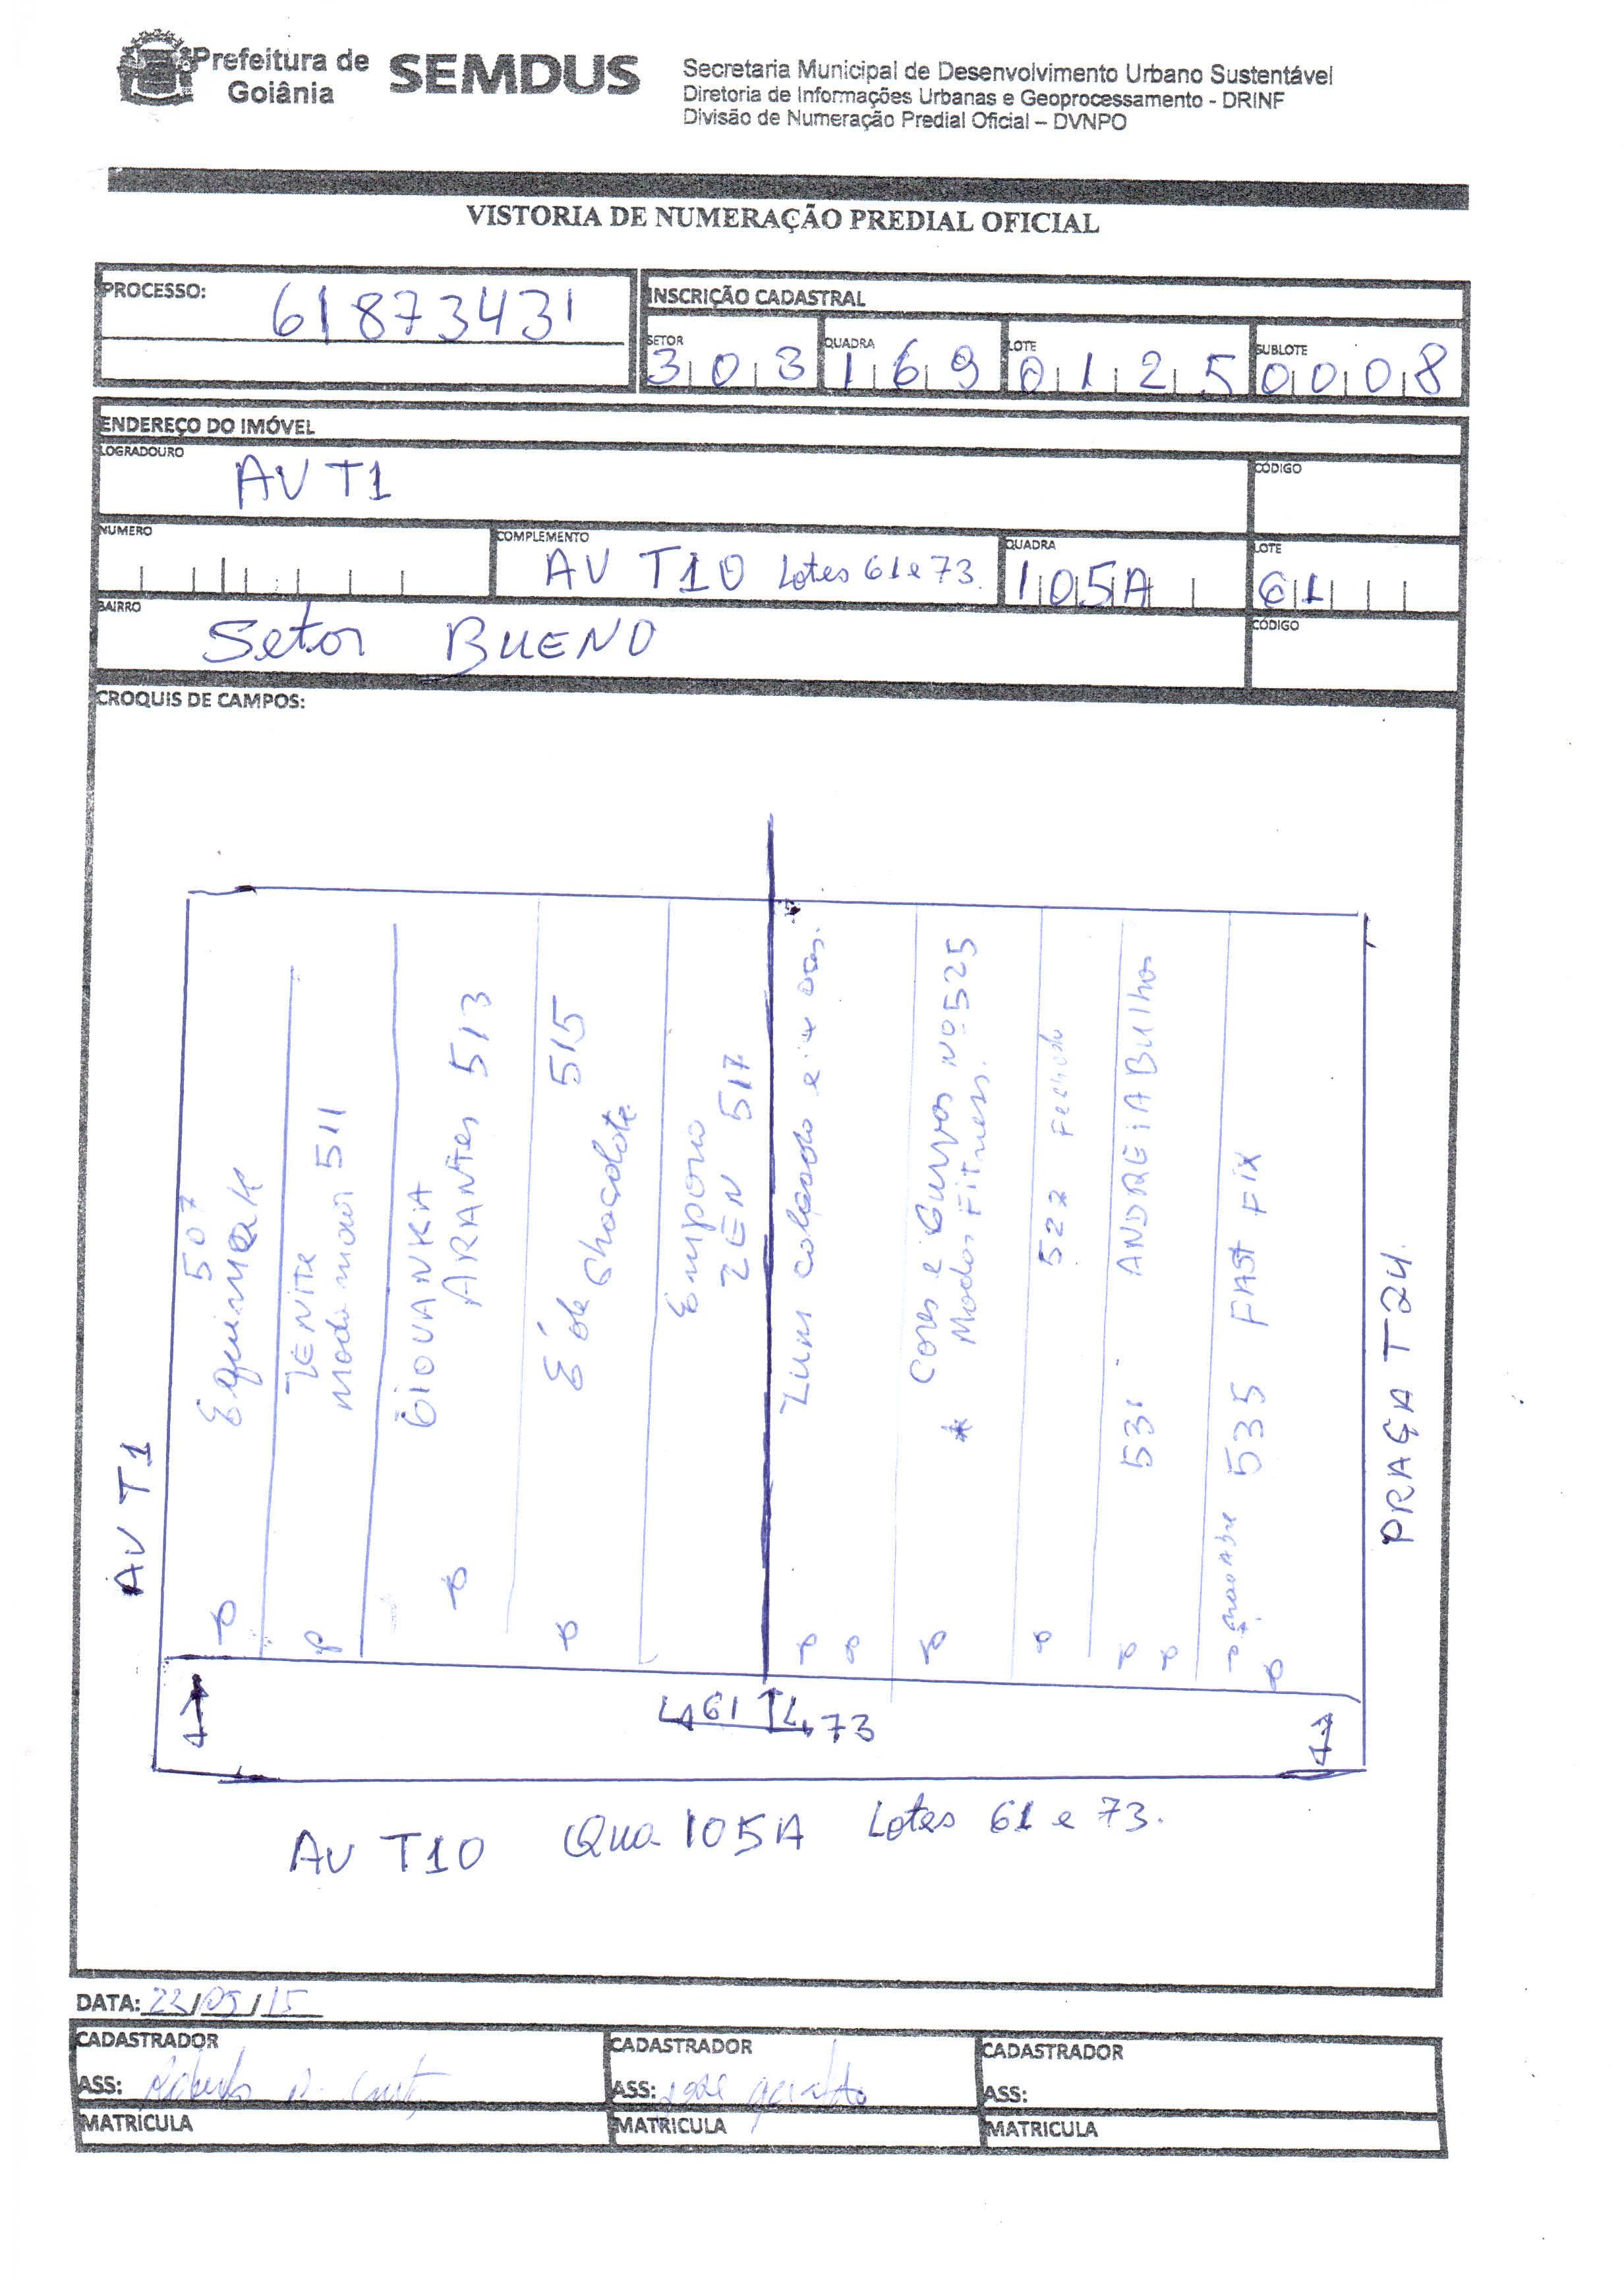 Prefeitura de
Goiânia
SEMDUS
Secretaria Municipal de Desenvolvimento Urbano Sustentável
Diretoria de Informações Urbanas e Geoprocessamento - DRINF
Divisão de Numeração Predial Oficial – DVNPO
VISTORIA DE NUMERAÇÃO PREDIAL OFICIAL
PROCESSO: 61873431
INSCRIÇÃO CADASTRAL
SETOR 303 QUADRA 169 LOTE 0125 SUBLOTE 0008
ENDEREÇO DO IMÓVEL
LOGRADOURO AV T1 CÓDIGO
NUMERO COMPLEMENTO AV T10 Lotes 61 e 73. QUADRA 105A LOTE 61
BAIRRO Setor BUENO CÓDIGO
CROQUIS DE CAMPOS:
AV T1
507
Equimark
ZENITE
511
GIOVANKA
ARANTES 513
515
Emporio
ZEN 517
Cores e Curvas Nº 525
* Modas Fitness.
527 Fechado
531 ANDREIA Bulhos
535 FAST FIX
PRAÇA T24.
L 61 L 73
AV T10 Qua 105A Lotes 61 e 73.
DATA: 22/05/15
CADASTRADOR CADASTRADOR CADASTRADOR
ASS: ASS: geraldo ASS:
MATRICULA MATRICULA MATRICULA